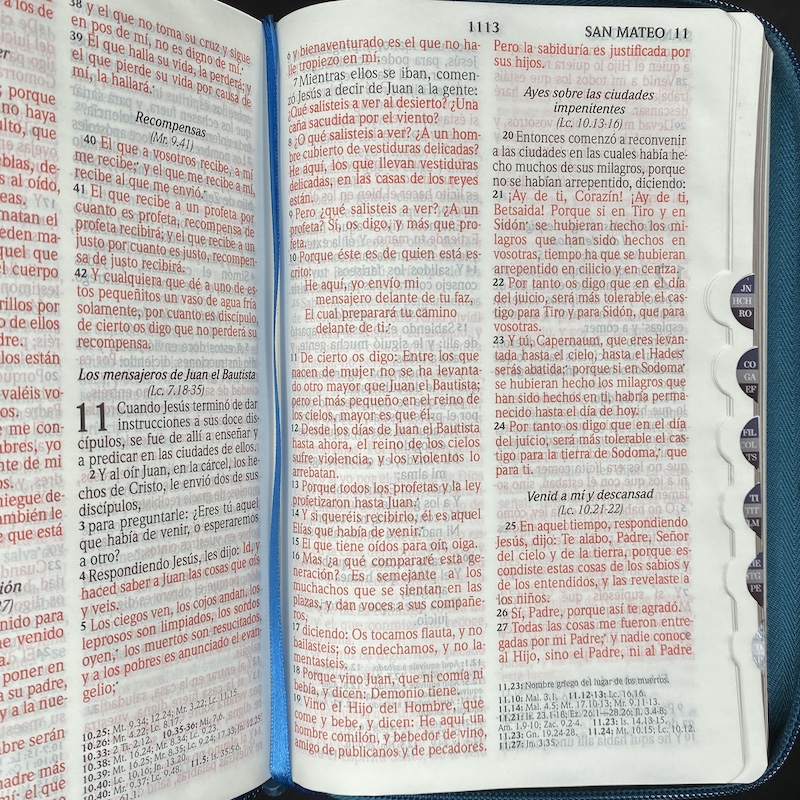 38 y el que no toma su cruz y sigue
en pos de mí, no es digno de mí.
39 El que halla su vida, la perderá; y
el que pierde su vida por causa de
mí, la hallará.
Recompensas
(Mr. 9.41)
40 El que a vosotros recibe, a mí
me recibe; y el que me recibe a mí,
recibe al que me envió.
41 El que recibe a un profeta por
cuanto es profeta, recompensa de
profeta recibirá; y el que recibe a un
justo por cuanto es justo, recompen-
sa de justo recibirá.
42 Y cualquiera que dé a uno de es-
tos pequeñitos un vaso de agua fría
solamente, por cuanto es discípulo,
de cierto os digo que no perderá su
recompensa.
Los mensajeros de Juan el Bautista
(Lc. 7.18-35)
11 Cuando Jesús terminó de dar
instrucciones a sus doce dis-
cípulos, se fue de allí a enseñar y
a predicar en las ciudades de ellos.
2 Y al oír Juan, en la cárcel, los he-
chos de Cristo, le envió dos de sus
discípulos,
3 para preguntarle: ¿Eres tú aquel
que había de venir, o esperaremos
a otro?
4 Respondiendo Jesús, les dijo: Id, y
haced saber a Juan las cosas que oís
y veis.
5 Los ciegos ven, los cojos andan, los
leprosos son limpiados, los sordos
oyen, los muertos son resucitados,
y a los pobres es anunciado el evan-
gelio;
10.25: Mt. 9.34; 12.24; Mr. 3.22; Lc. 11.15.
10.26: Mr. 4.22; Lc. 8.17.
10.33: 2 Ti. 2.12. 10.35-36: Mi. 7.6.
10.38: Mt. 16.24; Mr. 8.34; Lc. 9.23.
10.39: Mt. 16.25; Mr. 8.35; Lc. 9.24; 17.33; Jn. 12.25.
10.40: Lc. 10.16; Jn. 13.20.
10.40: Mr. 9.37; Lc. 9.48. 11.5: Is. 35.5-6;
61.1.
1113
SAN MATEO 11
6 y bienaventurado es el que no ha-
lle tropiezo en mí.
7 Mientras ellos se iban, comen-
zó Jesús a decir de Juan a la gente:
¿Qué salisteis a ver al desierto? ¿Una
caña sacudida por el viento?
8 ¿O qué salisteis a ver? ¿A un hom-
bre cubierto de vestiduras delicadas?
He aquí, los que llevan vestiduras
delicadas, en las casas de los reyes
están.
9 Pero ¿qué salisteis a ver? ¿A un
profeta? Sí, os digo, y más que pro-
feta.
10 Porque éste es de quien está es-
crito:
He aquí, yo envío mi
mensajero delante de tu faz,
El cual preparará tu camino
delante de ti.
11 De cierto os digo: Entre los que
nacen de mujer no se ha levanta-
do otro mayor que Juan el Bautista;
pero el más pequeño en el reino de
los cielos, mayor es que él.
12 Desde los días de Juan el Bautista
hasta ahora, el reino de los cielos
sufre violencia, y los violentos lo
arrebatan.
13 Porque todos los profetas y la ley
profetizaron hasta Juan.
14 Y si queréis recibirlo, él es aquel
Elías que había de venir.
15 El que tiene oídos para oír, oiga.
16 Mas ¿a qué compararé esta ge-
neración? Es semejante a los
muchachos que se sientan en las
plazas, y dan voces a sus compañe-
ros,
17 diciendo: Os tocamos flauta, y no
bailasteis; os endechamos, y no la-
mentasteis.
18 Porque vino Juan, que ni comía ni
bebía, y dicen: Demonio tiene.
19 Vino el Hijo del Hombre, que
come y bebe, y dicen: He aquí un
hombre comilón, y bebedor de vino,
amigo de publicanos y de pecadores.
Pero la sabiduría es justificada por
sus hijos.
Ayes sobre las ciudades
impenitentes
(Lc. 10.13-16)
20 Entonces comenzó a reconvenir
a las ciudades en las cuales había he-
cho muchos de sus milagros, porque
no se habían arrepentido, diciendo:
21 ¡Ay de ti, Corazín! ¡Ay de ti,
Betsaida! Porque si en Tiro y en
Sidón se hubieran hecho los mi-
lagros que han sido hechos en
vosotras, tiempo ha que se hubieran
arrepentido en cilicio y en ceniza.
22 Por tanto os digo que en el día
del juicio, será más tolerable el cas-
tigo para Tiro y para Sidón, que para
vosotras.
23 Y tú, Capernaum, que eres levan-
tada hasta el cielo, hasta el Hades
serás abatida; porque si en Sodoma
se hubieran hecho los milagros que
han sido hechos en ti, habría perma-
necido hasta el día de hoy.
24 Por tanto os digo que en el día
del juicio, será más tolerable el cas-
tigo para la tierra de Sodoma, que
para ti.
Venid a mí y descansad
(Lc. 10.21-22)
25 En aquel tiempo, respondiendo
Jesús, dijo: Te alabo, Padre, Señor
del cielo y de la tierra, porque es-
condiste estas cosas de los sabios y
de los entendidos, y las revelaste a
los niños.
26 Sí, Padre, porque así te agradó.
27 Todas las cosas me fueron entre-
gadas por mi Padre; y nadie conoce
al Hijo, sino el Padre, ni al Padre
11.23: Nombre griego del lugar de los muertos.
11.10: Mal. 3.1. 11.12-13: Lc. 16.16.
11.14: Mal. 4.5; Mt. 17.10-13; Mr. 9.11-13.
11.21: Is. 23.1-18; Ez. 26.1—28.26; Jl. 3.4-8;
Am. 1.9-10; Zac. 9.2-4. 11.23: Is. 14.13-15.
11.23: Gn. 19.24-28. 11.24: Mt. 10.15; Lc. 10.12.
11.27: Jn. 3.35.
JN
HCH
RO
CO
GA
EF
FIL
COL
TS
TI
TIT